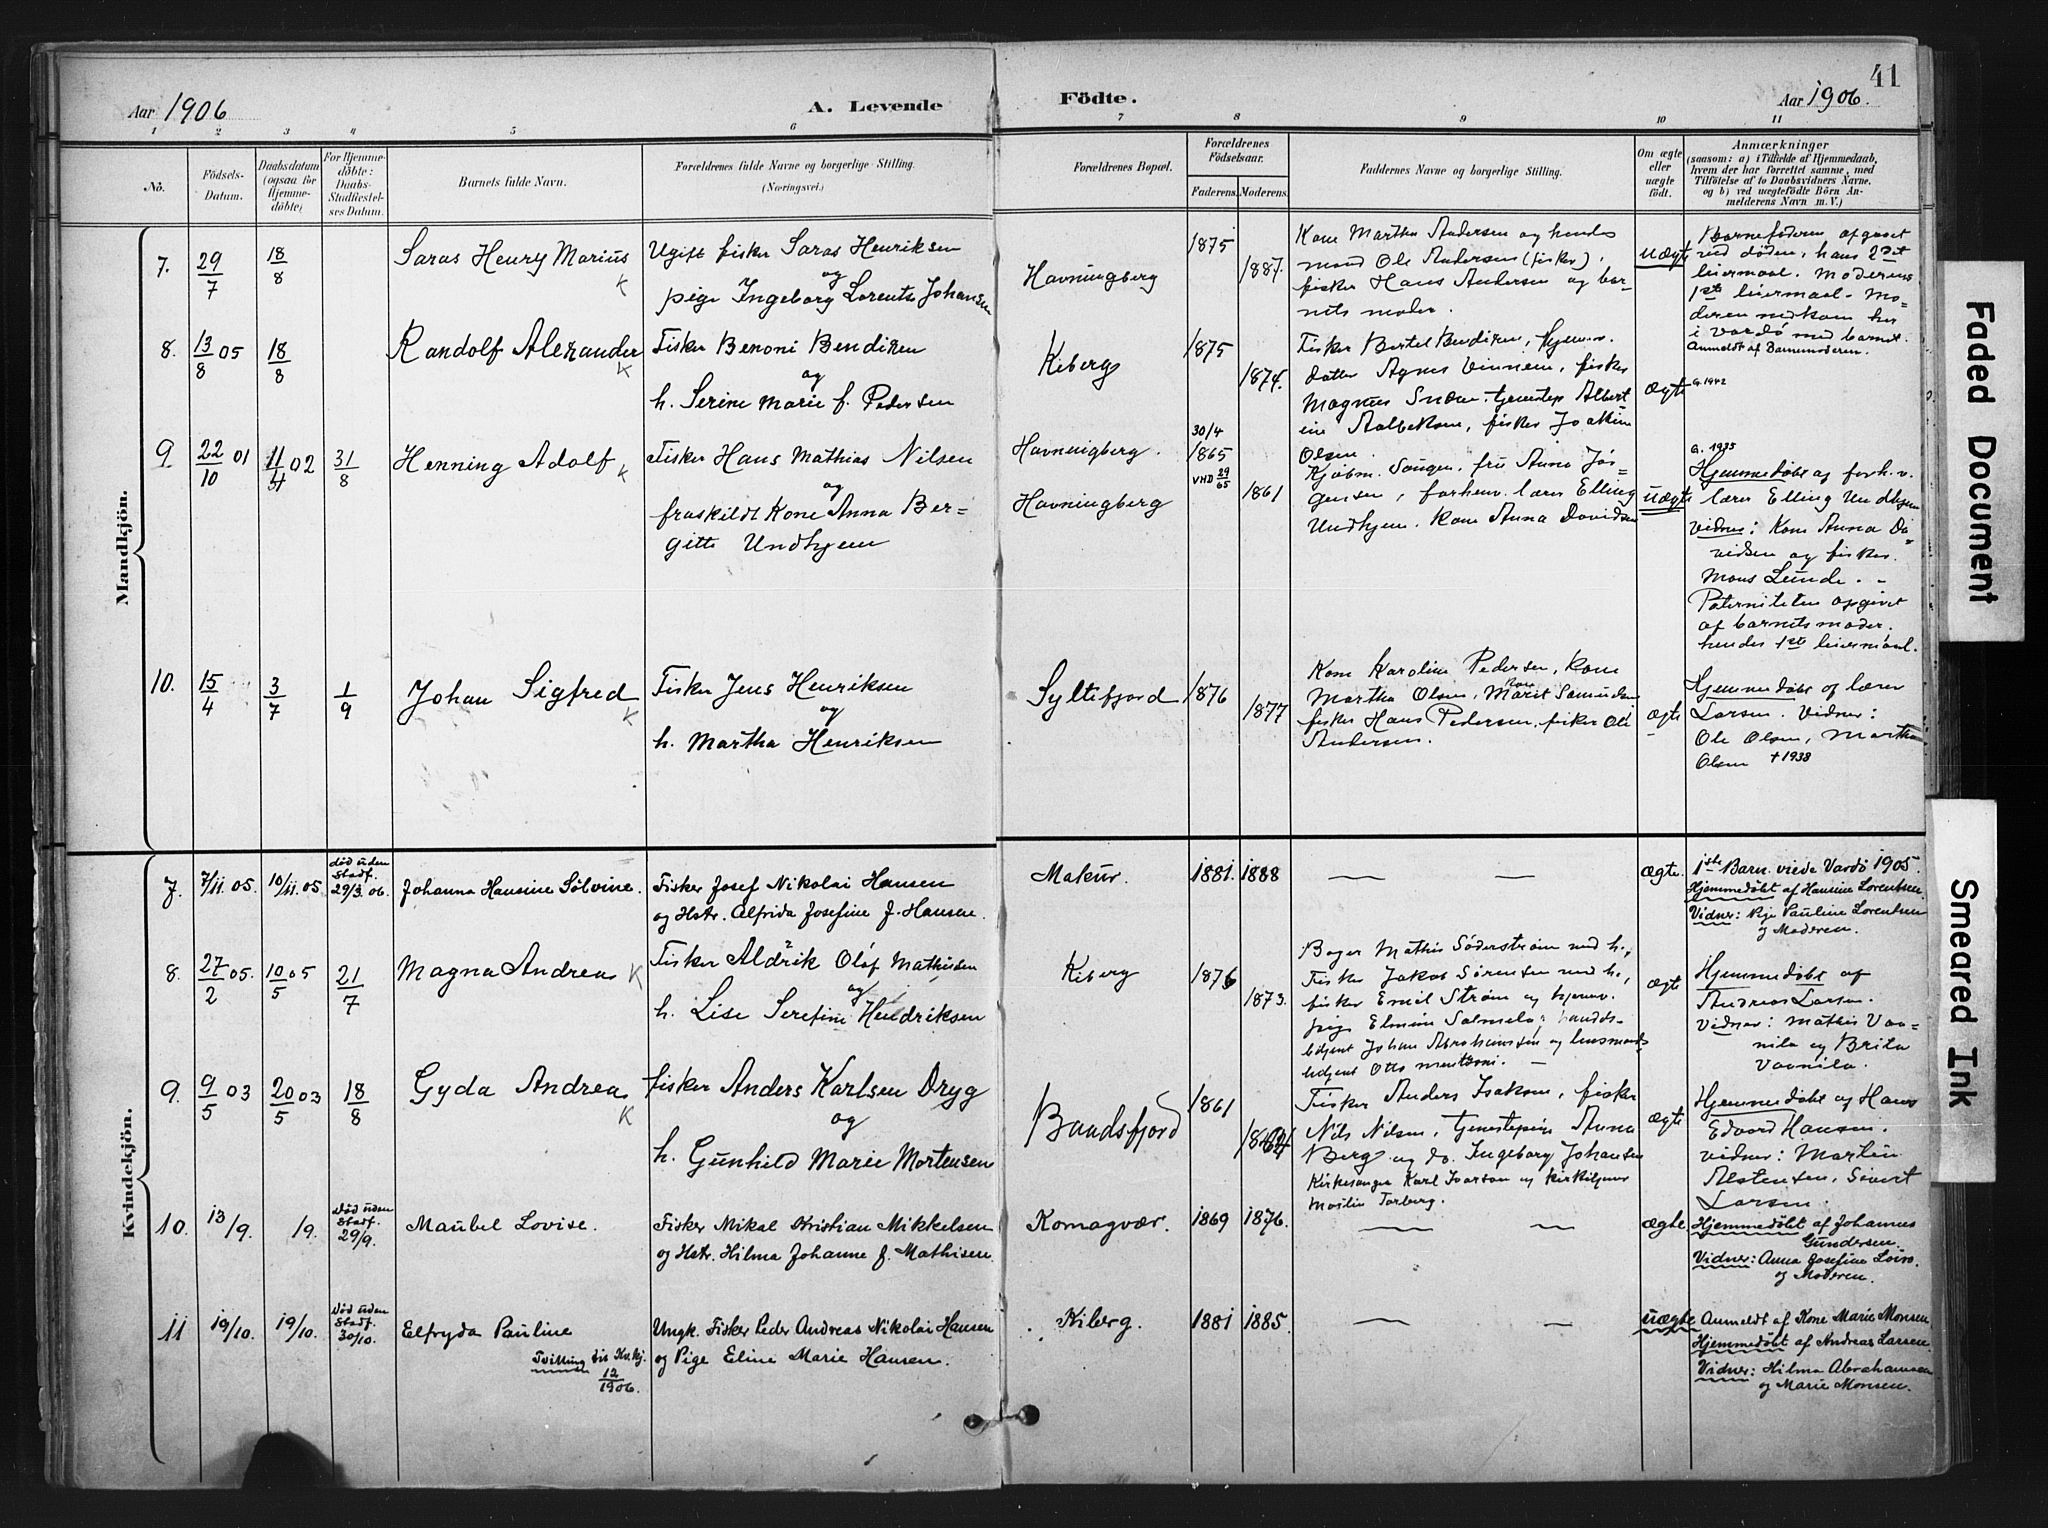 41
Aar 1906
A. Levende
Födte.
Aar 1906.
1 2 3 4 5 6 7 8 9 10 11
No.
Födsels-
Datum.
Daabsdatum
(ogsaa for
Hjemme-
döbte)
For Hjemme-
döbte:
Daabs-
Stadfæstel-
ses Datum.
Barnets fulde Navn.
Forældrenes fulde Navne og borgerlige Stilling.
(Næringsvei.)
Forældrenes Bopæl.
Forældrenes
Födselsaar.
Faderens.
Moderens.
Faddernes Navne og borgerlige Stilling.
Om ægte
eller
uægte
födt.
Anmærkninger
(saasom: a) i Tilfælde af Hjemmedaab,
hvem der har forrettet samme, med
Tilföielse af to Daabsvidners Navne,
og b) ved uægtefödte Börn An-
melderens Navn m. V.)
Mandkjön.
7. 29/7 18/8 Saras Henry Marius K
Ugift fisker Saras Henriksen
og
pige Ingeborg Lorentse Johansen
Havningberg
1875
1887.
Kone Martha Andersen og hendes
mand Ole Andersen (fisker),
fisker Hans Andersen og bar-
nets moder.
uægte
Barnefaderen opgivet
ved döden, hans 2det
leiermaal. Moderens
1ste leiermaal. Mo-
deren nedkom her
i Vardö med barnet.
Anmeldt af Barnemoderen.
8. 13/8 05 18/8 Randolf Alexander K
Fisker Benoni Bendixen
og
h. Serine Marie f. Pedersen
Kiberg
1875
1874.
Fisker Bertel Bendixen, Hjemv.
datter Agnes Vinnem, fisker
Magnus tjenestep. Albert
ine fisker Joakim
Olsen.
ægte
G. 1942
9 22/10 01 11/4 02 31/8 Henning Adolf K
Fisker Hans Mathias Nilsen
og
fraskildt Kone Anna Ber-
gitte Undhjem
Havningberg.
Havningberg
30/4
1865
VHD 29/65
1861
Kjøbm. fru Anna Jör-
gensen, forhenv. lærer Elling
Undhjem. Kone Anna Davidsen
uægte
G. 1935
Hjemmedøbt af forh.v.
lærer Elling Undhjem
Vidner: Kone Anna Da-
vidsen og fisker
Mons Lunde. -
Paterniteten opgivet
af barnets moder.
hendes 1ste leiermaal.
10. 15/4 3/7 1/9 Johan Sigfred K
Fisker Jens Henriksen
og
h. Martha Henriksen
Syltefjord
1876
1877
Kone Karoline Pedersen, Kone
Martha Olsen, Kone Marit
fisker Hans Pedersen, fisker Ole
Andersen.
ægte
Hjemmedøbt af lærer
Larsen. Vidner:
Ole Olsen, Martha
Olsen † 1938
Kvindekjön.
7. 7/11 05. 10/11 05 død uden
Stadf.
29/3 06.
Johanna Hansine Sølvine.
Fisker Josef Nikolai Hansen
og Hstr. Alfrida Josefine f. Hansen.
Makur.
1881. 1888 — —
ægte.
1ste Barn. viede Vardö 1905.
Hjemmedøbt af Hansine Lorentsen
Vidner: Pige Pauline Lorentsen
og Moderen.
8. 27/2 05. 10/5 05 21/7 Magna Andrea K
Fisker Aldrik Olof Mathisen
og
h. Lise Serefine Hendriksen
Kiberg
1876
1873.
Bager Mathis Söderström med h.,
Fisker Jakob Sørensen med h.,
fisker Emil Strøm og hjemv.
pige Elmine hands-
betjent Johan Abrahamsen og lensmands
betjent Otto —
ægte
Hjemmedøbt af
Andreas Larsen.
Vidner: Mathis
og Brita
9. 9/5 03 20/5 03 18/8 Gyda Andrea K
Fisker Anders Karlsen Dryg
og
h. Gunhild Marie Mortensen
Baadsfjord
1861
Fisker Anders Isaksen, fisker
Nils Nilsen, tjenestepige Anna
Berg og do. Ingeborg Johansen
Kirkesanger Karl Ivarson og kirketjener
Martin Torberg.
ægte
Hjemmedøbt af Hans
Edvard Hansen.
Vidner: Martin
Alstensen, Sivert
Larsen.
10. 13/9. 19. Død uden
Stadf.
29/9.
Maubel Lovise.
Fisker Mikal Kristian Mikkelsen
og Hstr. Hilma Johanne f. Mathisen.
Komagvær.
1869 1876. — —
ægte
Hjemmedøbt af Johannes
Gundersen.
Vidner: Anna Josefine
og Moderen.
11 19/10. 19/10. Død uden
Stadf.
30/10.
Elfryda Pauline
Tvilling til Kv.kj.
12
1906.
Ungk. Fisker Peder Andreas Nikolai Hansen
og Pige Eline Marie Hansen.
Kiberg.
1881 1885. — —
uægte
Anmeldt af Kone Marie Monsen.
Hjemmedøbt af Andreas Larsen.
Vidner: Hilma Abrahamsen
og Marie Monsen.
Faded Document
Smeared Ink